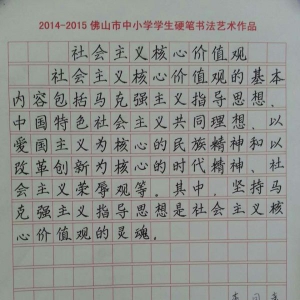 2014-2015佛山市中小学学生硬笔书法艺术作品
社会主义核心价值观
社会主义核心价值观的基本
内容包括马克强主义指导思想、
中国特色社会主义共同理想、以
爱国主义为核心的民族精神和以
改革创新为核心的时代精神、社
会主义荣辱观等。其中，坚持马
克强主义指导思想是社会主义核
心价值观的灵魂。